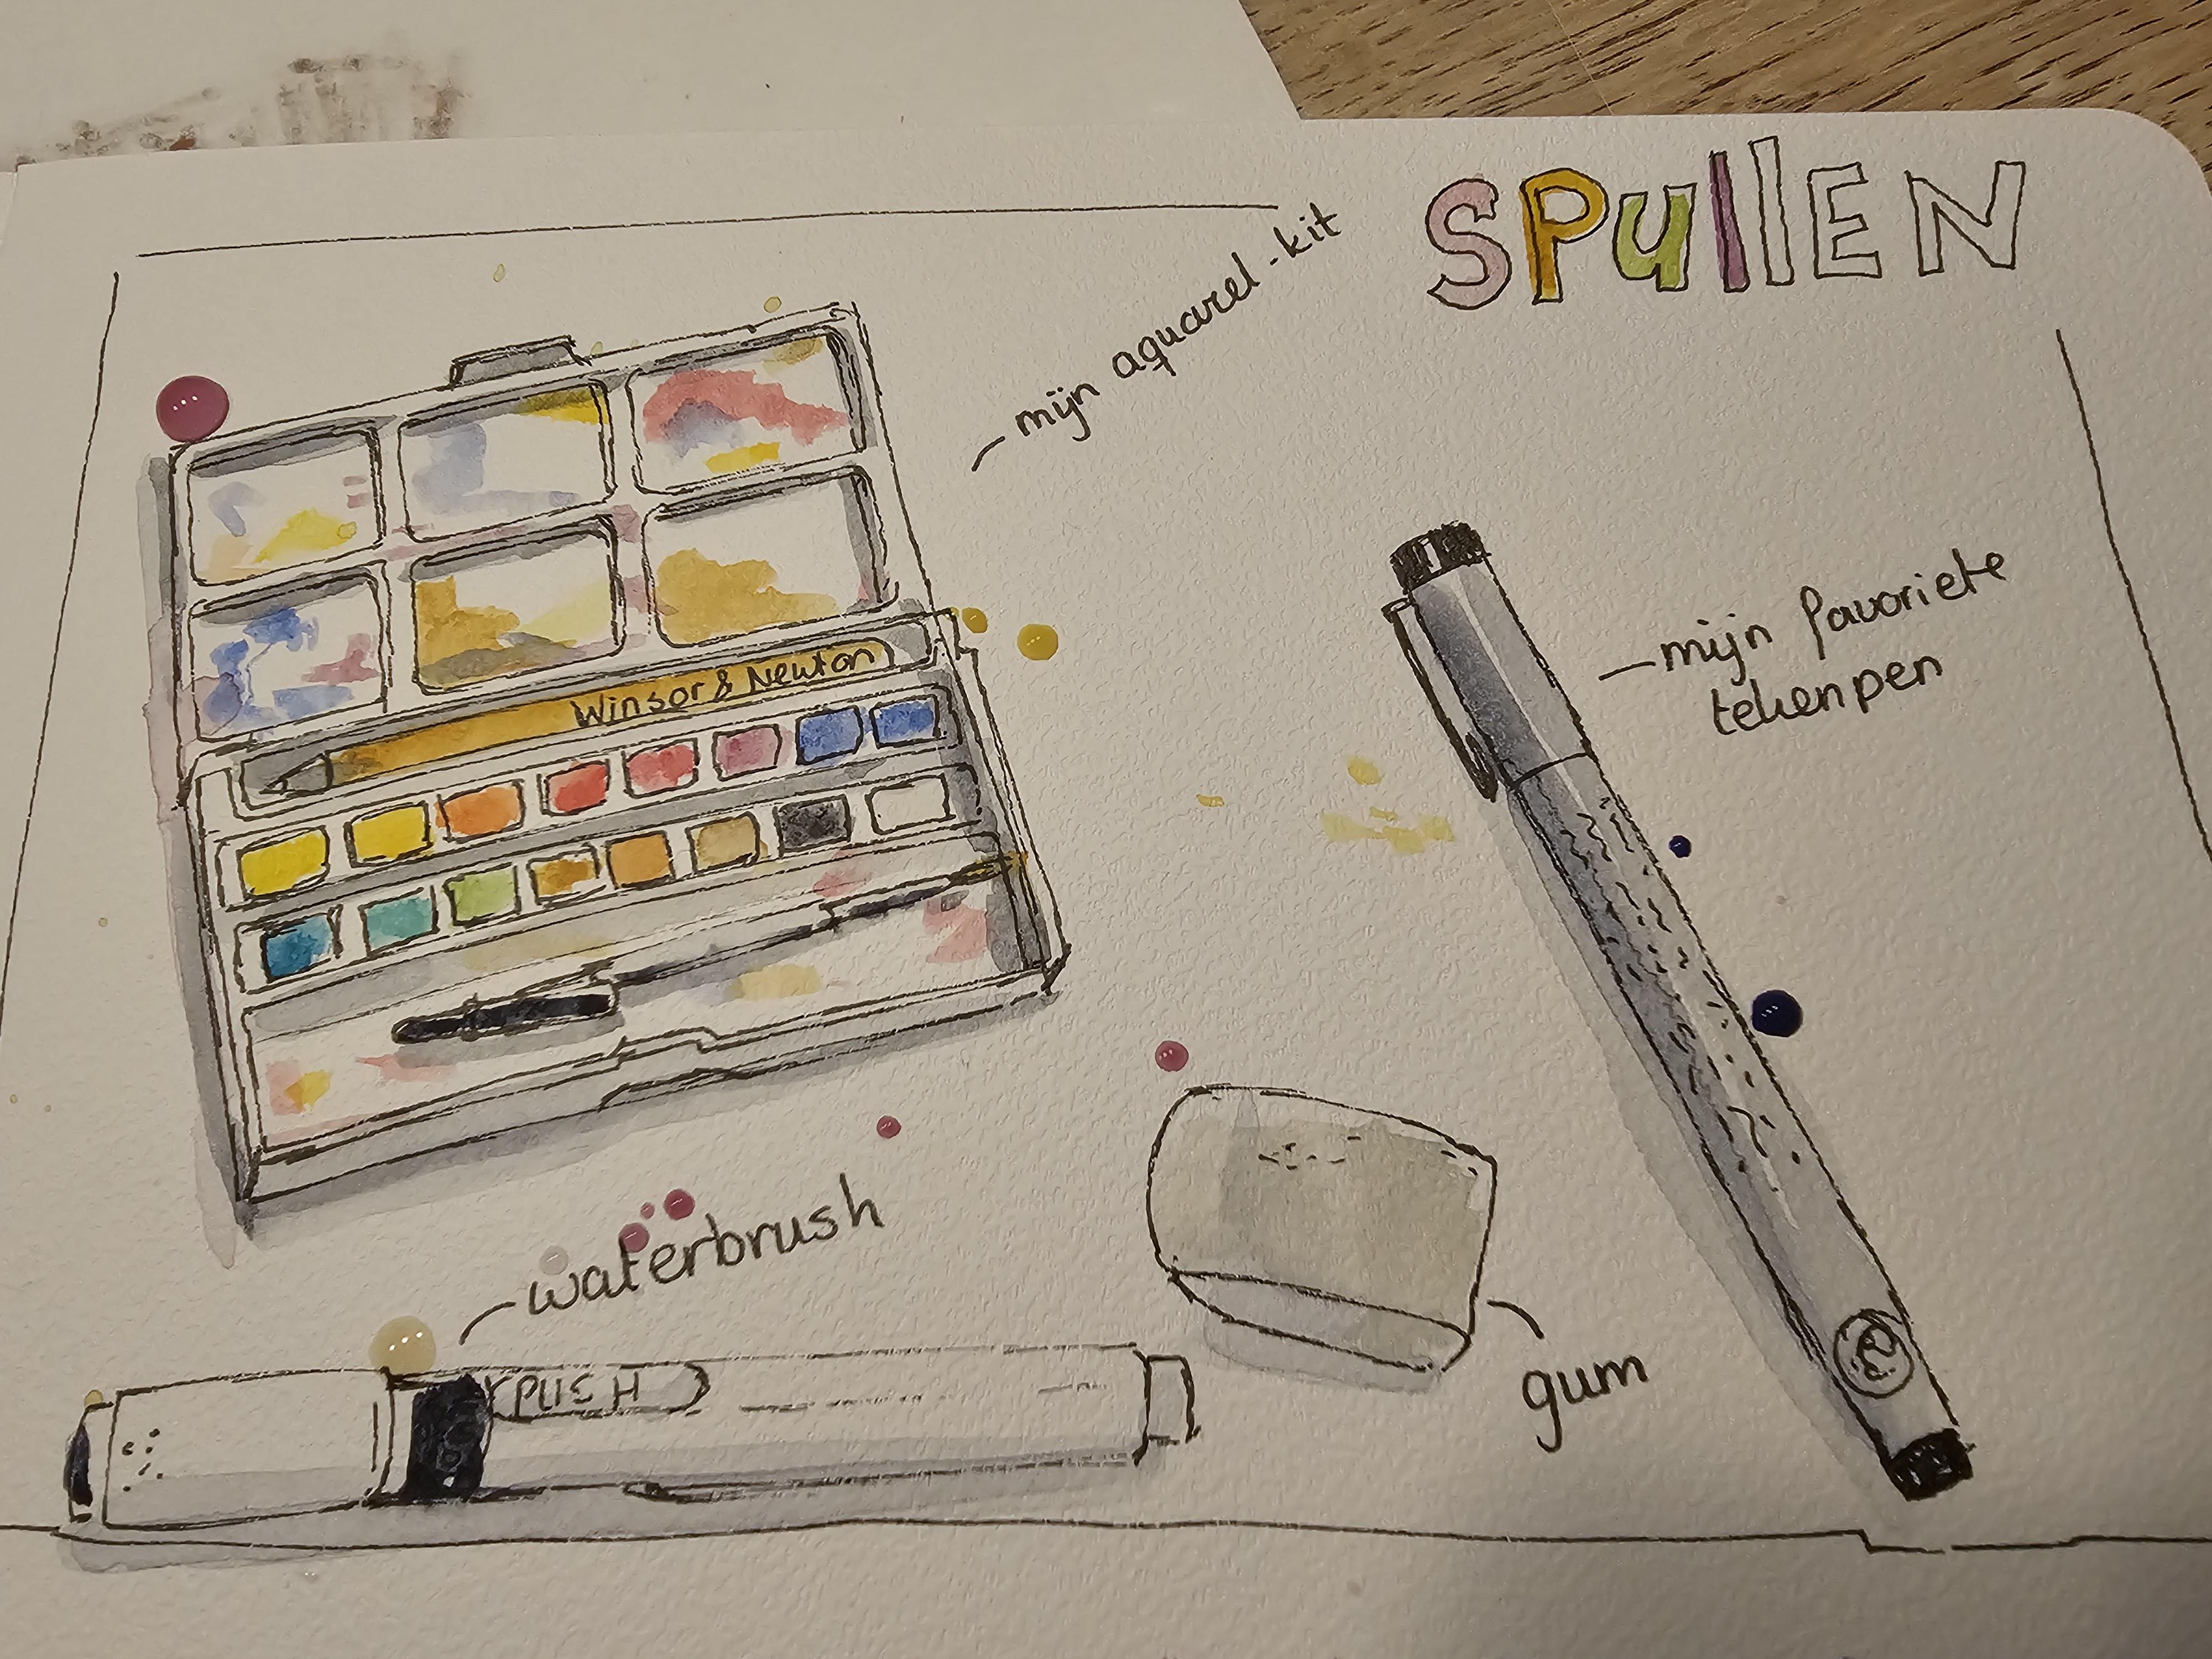 SPUllEN
mijn aquarel-kit
Winsor & Newton
mijn favoriete
tekenpen
waterbrush
PUSH
gum